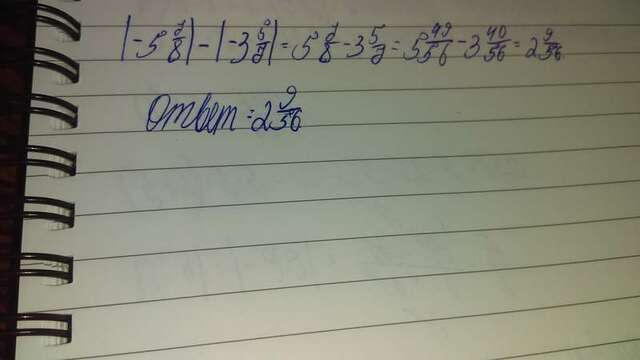 |-5 7/8| - |-3 5/7| = 5 7/8 - 3 5/7 = 5 49/56 - 3 40/56 = 2 9/56
Ответ: 2 9/56